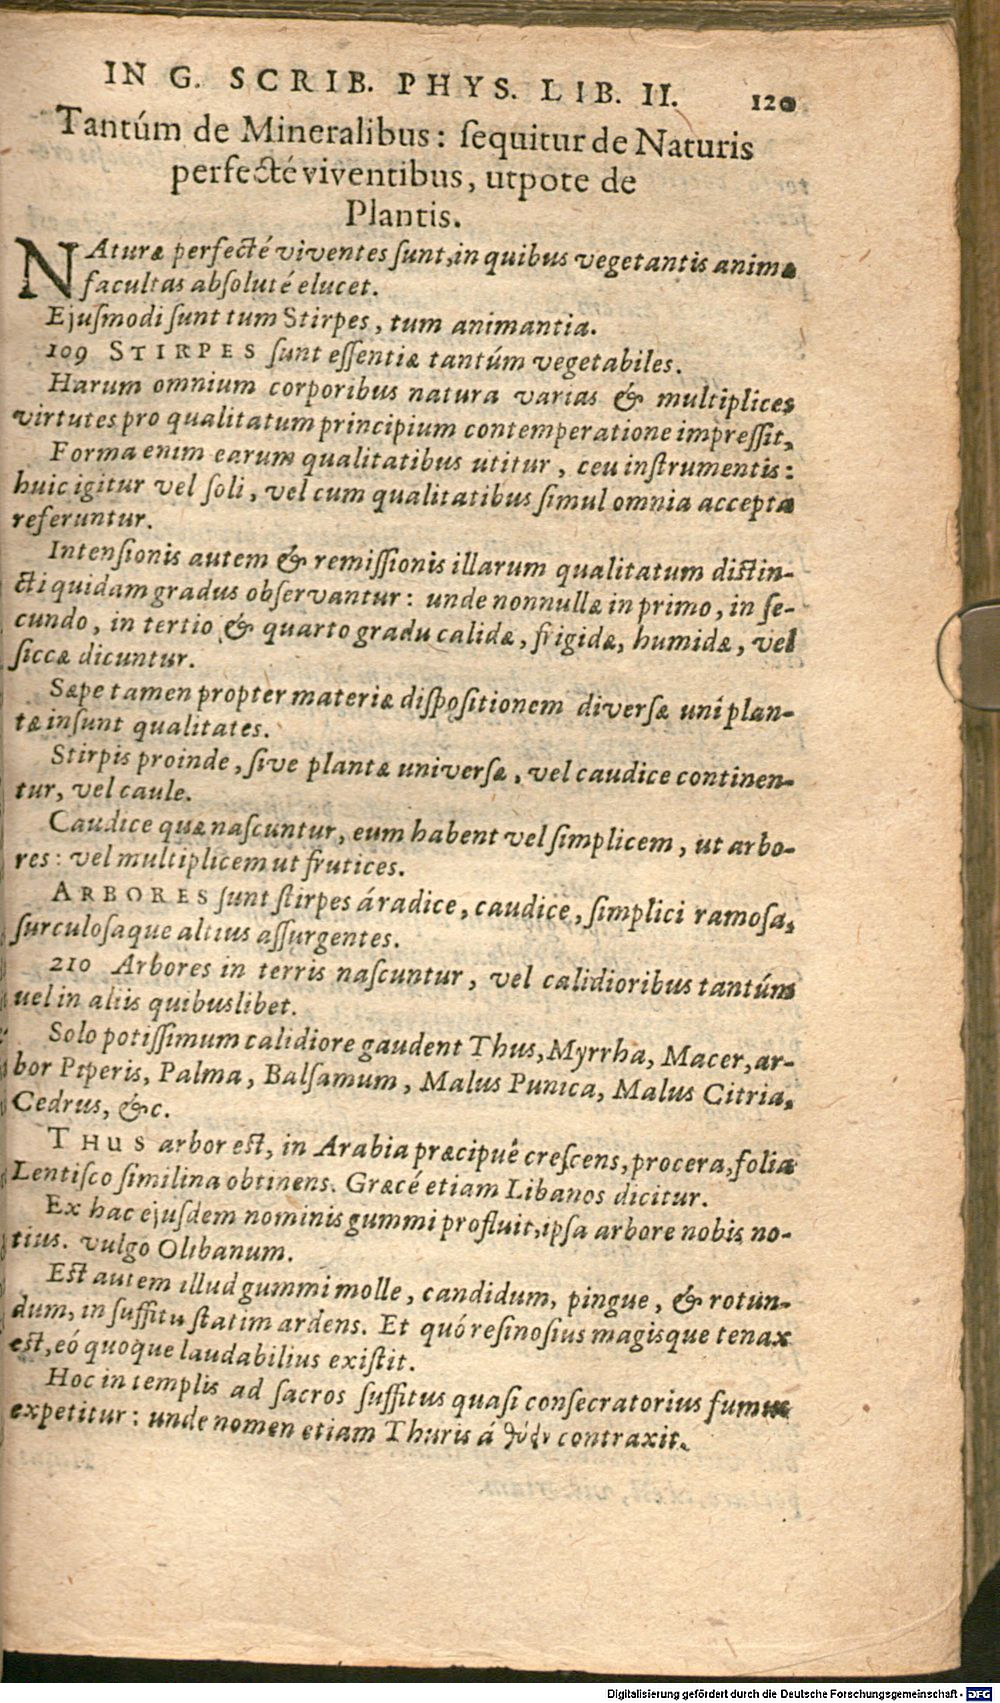 IN G. SCRIB. PHYS. LIB. II. 120
Tantúm de Mineralibus: ſequitur de Naturis
perfecté viventibus, utpote de
Plantis.
NAturæ perfecté viventes ſunt, in quibus vegetantis animæ
facultas abſoluté elucet.
Ejuſmodi ſunt tum Stirpes, tum animantia.
109 STIRPES ſunt eſſentiæ tantúm vegetabiles.
Harum omnium corporibus natura varias & multiplices
virtutes pro qualitatum principium contemperatione impreſſit,
Forma enim earum qualitatibus utitur, ceu inſtrumentis:
huic igitur vel ſoli, vel cum qualitatibus ſimul omnia accepta
referuntur.
Intenſionis autem & remiſſionis illarum qualitatum diſtin-
cti quidam gradus obſervantur: unde nonnullæ in primo, in ſe-
cundo, in tertio & quarto gradu calidæ, frigidæ, humidæ, vel
ſiccæ dicuntur.
Sæpe tamen propter materiæ diſpoſitionem diverſæ uni plan-
tæ inſunt qualitates.
Stirpis proinde, ſive plantæ univerſæ, vel caudice continen-
tur, vel caule.
Caudice quæ naſcuntur, eum habent vel ſimplicem, ut arbo-
res: vel multiplicem ut frutices.
ARBORES ſunt ſtirpes á radice, caudice, ſimplici ramoſa,
ſurculoſaque altius aſſurgentes.
210 Arbores in terris naſcuntur, vel calidioribus tantúm
uel in aliis quibuslibet.
Solo potiſſimum calidiore gaudent Thus, Myrrha, Macer, ar-
bor Piperis, Palma, Balſamum, Malus Punica, Malus Citria,
Cedrus, &c.
THUS arbor eſt, in Arabia præcipué creſcens, procera, folia
Lentiſco ſimilina obtinens. Græcé etiam Libanos dicitur.
Ex hac ejuſdem nominis gummi profluit, ipſa arbore nobis no-
tius. vulgo Olibanum.
Eſt autem illud gummi molle, candidum, pingue, & rotun-
dum, in ſuffitu ſtatim ardens. Et quó reſinoſius magisque tenax
eſt, eó quoque laudabilius exiſtit.
Hoc in templis ad ſacros ſuffitus quaſi conſecratorius fumus
expetitur: unde nomen etiam Thuris á contraxit.
Digitalisierung gefördert durch die Deutsche Forschungsgemeinschaft - DFG